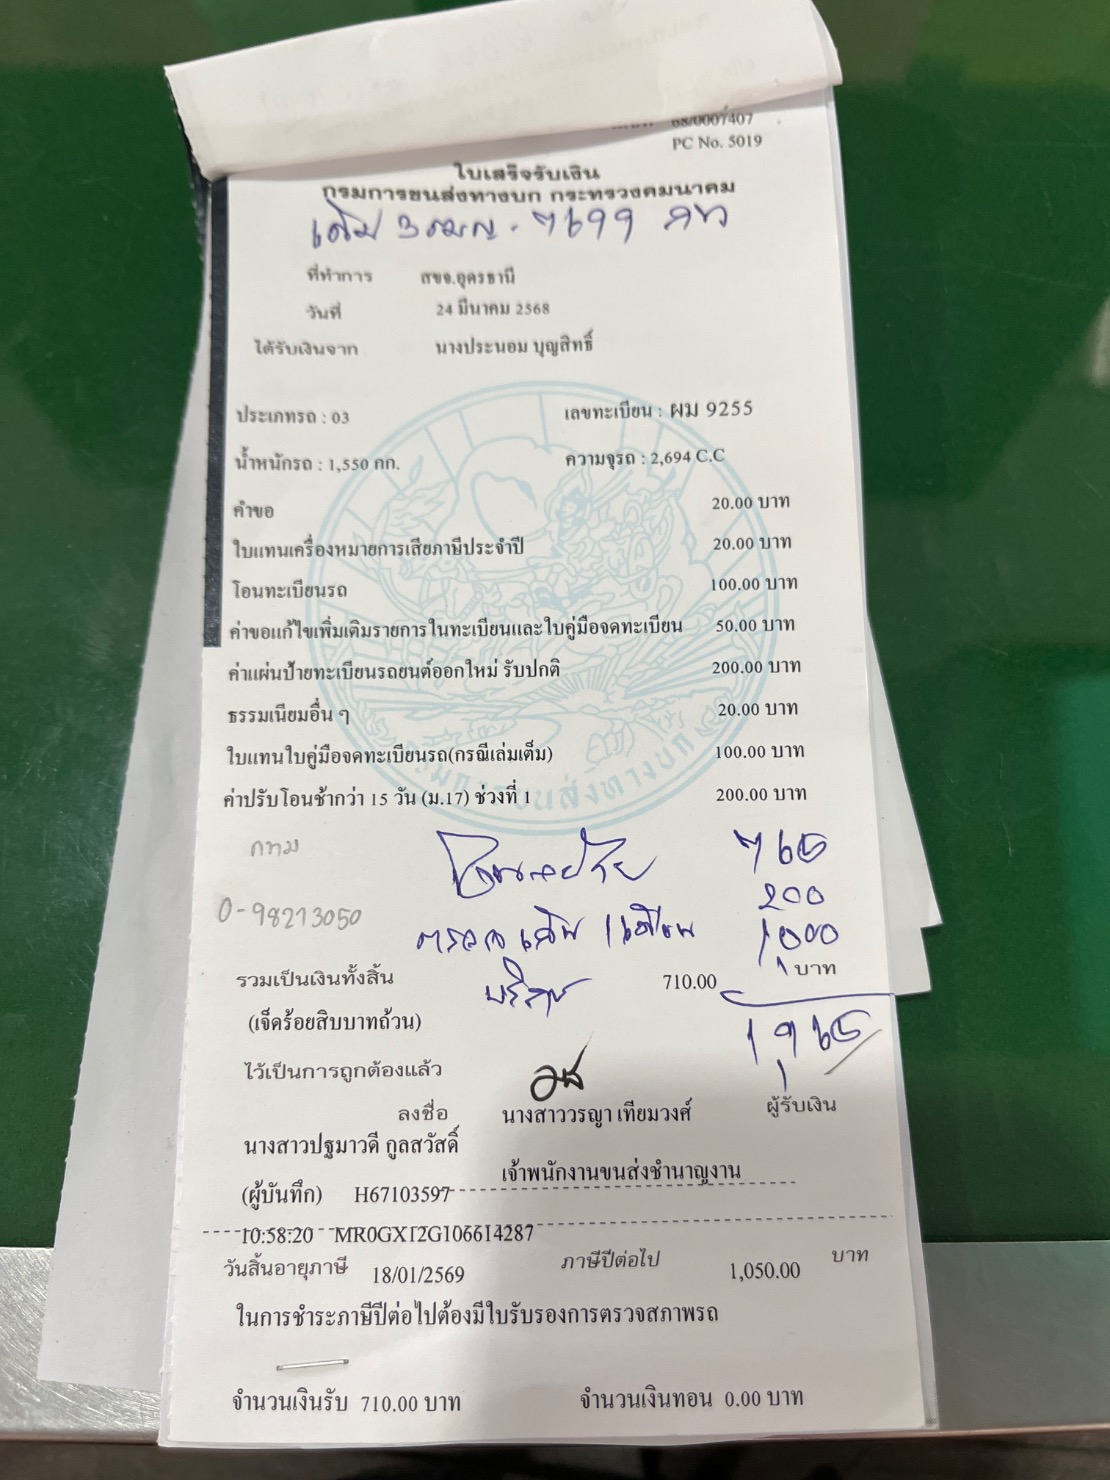 68/0007407
PC No. 5019
ใบเสร็จรับเงิน
กรมการขนส่งทางบก กระทรวงคมนาคม
เดิม 3 7699 กท
ที่ทำการ สขจ.อุดรธานี
วันที่ 24 มีนาคม 2568
ได้รับเงินจาก นางประนอม บุญสิทธิ์
ประเภทรถ : 03 เลขทะเบียน : ผม 9255
น้ำหนักรถ : 1,550 กก. ความจุรถ : 2,694 C.C
คำขอ 20.00 บาท
ใบแทนเครื่องหมายการเสียภาษีประจำปี 20.00 บาท
โอนทะเบียนรถ 100.00 บาท
ค่าขอแก้ไขเพิ่มเติมรายการในทะเบียนและใบคู่มือจดทะเบียน 50.00 บาท
ค่าแผ่นป้ายทะเบียนรถยนต์ออกใหม่ รับปกติ 200.00 บาท
ธรรมเนียมอื่น ๆ 20.00 บาท
ใบแทนใบคู่มือจดทะเบียนรถ(กรณีเล่มเต็ม) 100.00 บาท
ค่าปรับโอนช้ากว่า 15 วัน (ม.17) ช่วงที่ 1 200.00 บาท
กรมการขนส่งทางบก
กทม 765
0-98213050 200
ตรวจ 1,000
รวมเป็นเงินทั้งสิ้น 710.00 บาท
(เจ็ดร้อยสิบบาทถ้วน) 1,965
ไว้เป็นการถูกต้องแล้ว
ลงชื่อ นางสาววรญา เทียมวงศ์ ผู้รับเงิน
นางสาวปฐมาวดี กูลสวัสดิ์
เจ้าพนักงานขนส่งชำนาญงาน
(ผู้บันทึก) H67103597
10:58:20 MR0GX12G106614287
วันสิ้นอายุภาษี 18/01/2569 ภาษีปีต่อไป 1,050.00 บาท
ในการชำระภาษีปีต่อไปต้องมีใบรับรองการตรวจสภาพรถ
จำนวนเงินรับ 710.00 บาท จำนวนเงินทอน 0.00 บาท